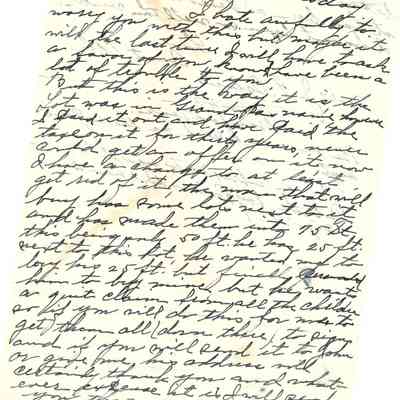 day
I hate awfully to
worry you with this, but maybe it
will be the last time I will have to ask
a favor of you, have been a
lot of trouble to you.
But this is the way it is, the
lot was in Grand Pas name, before
I paid it out and have paid the
taxes on it for thirty years, never
could get an offer on it, now
I have a chance to at last
get rid of it, the man that will
buy has some lots next to it
and has made them into 75 ft.
this being only 50 ft. he has 25 ft.
next to this lot, he wanted me to
buy his 25 ft, but finally
him to buy mine, but he wants
a quit claim from all the children
so if you will do this, for me, to
get them all (down there) to sign
and if you will send it to John
or give me his address will
certainly thank you and what
ever expense it is I will send
you